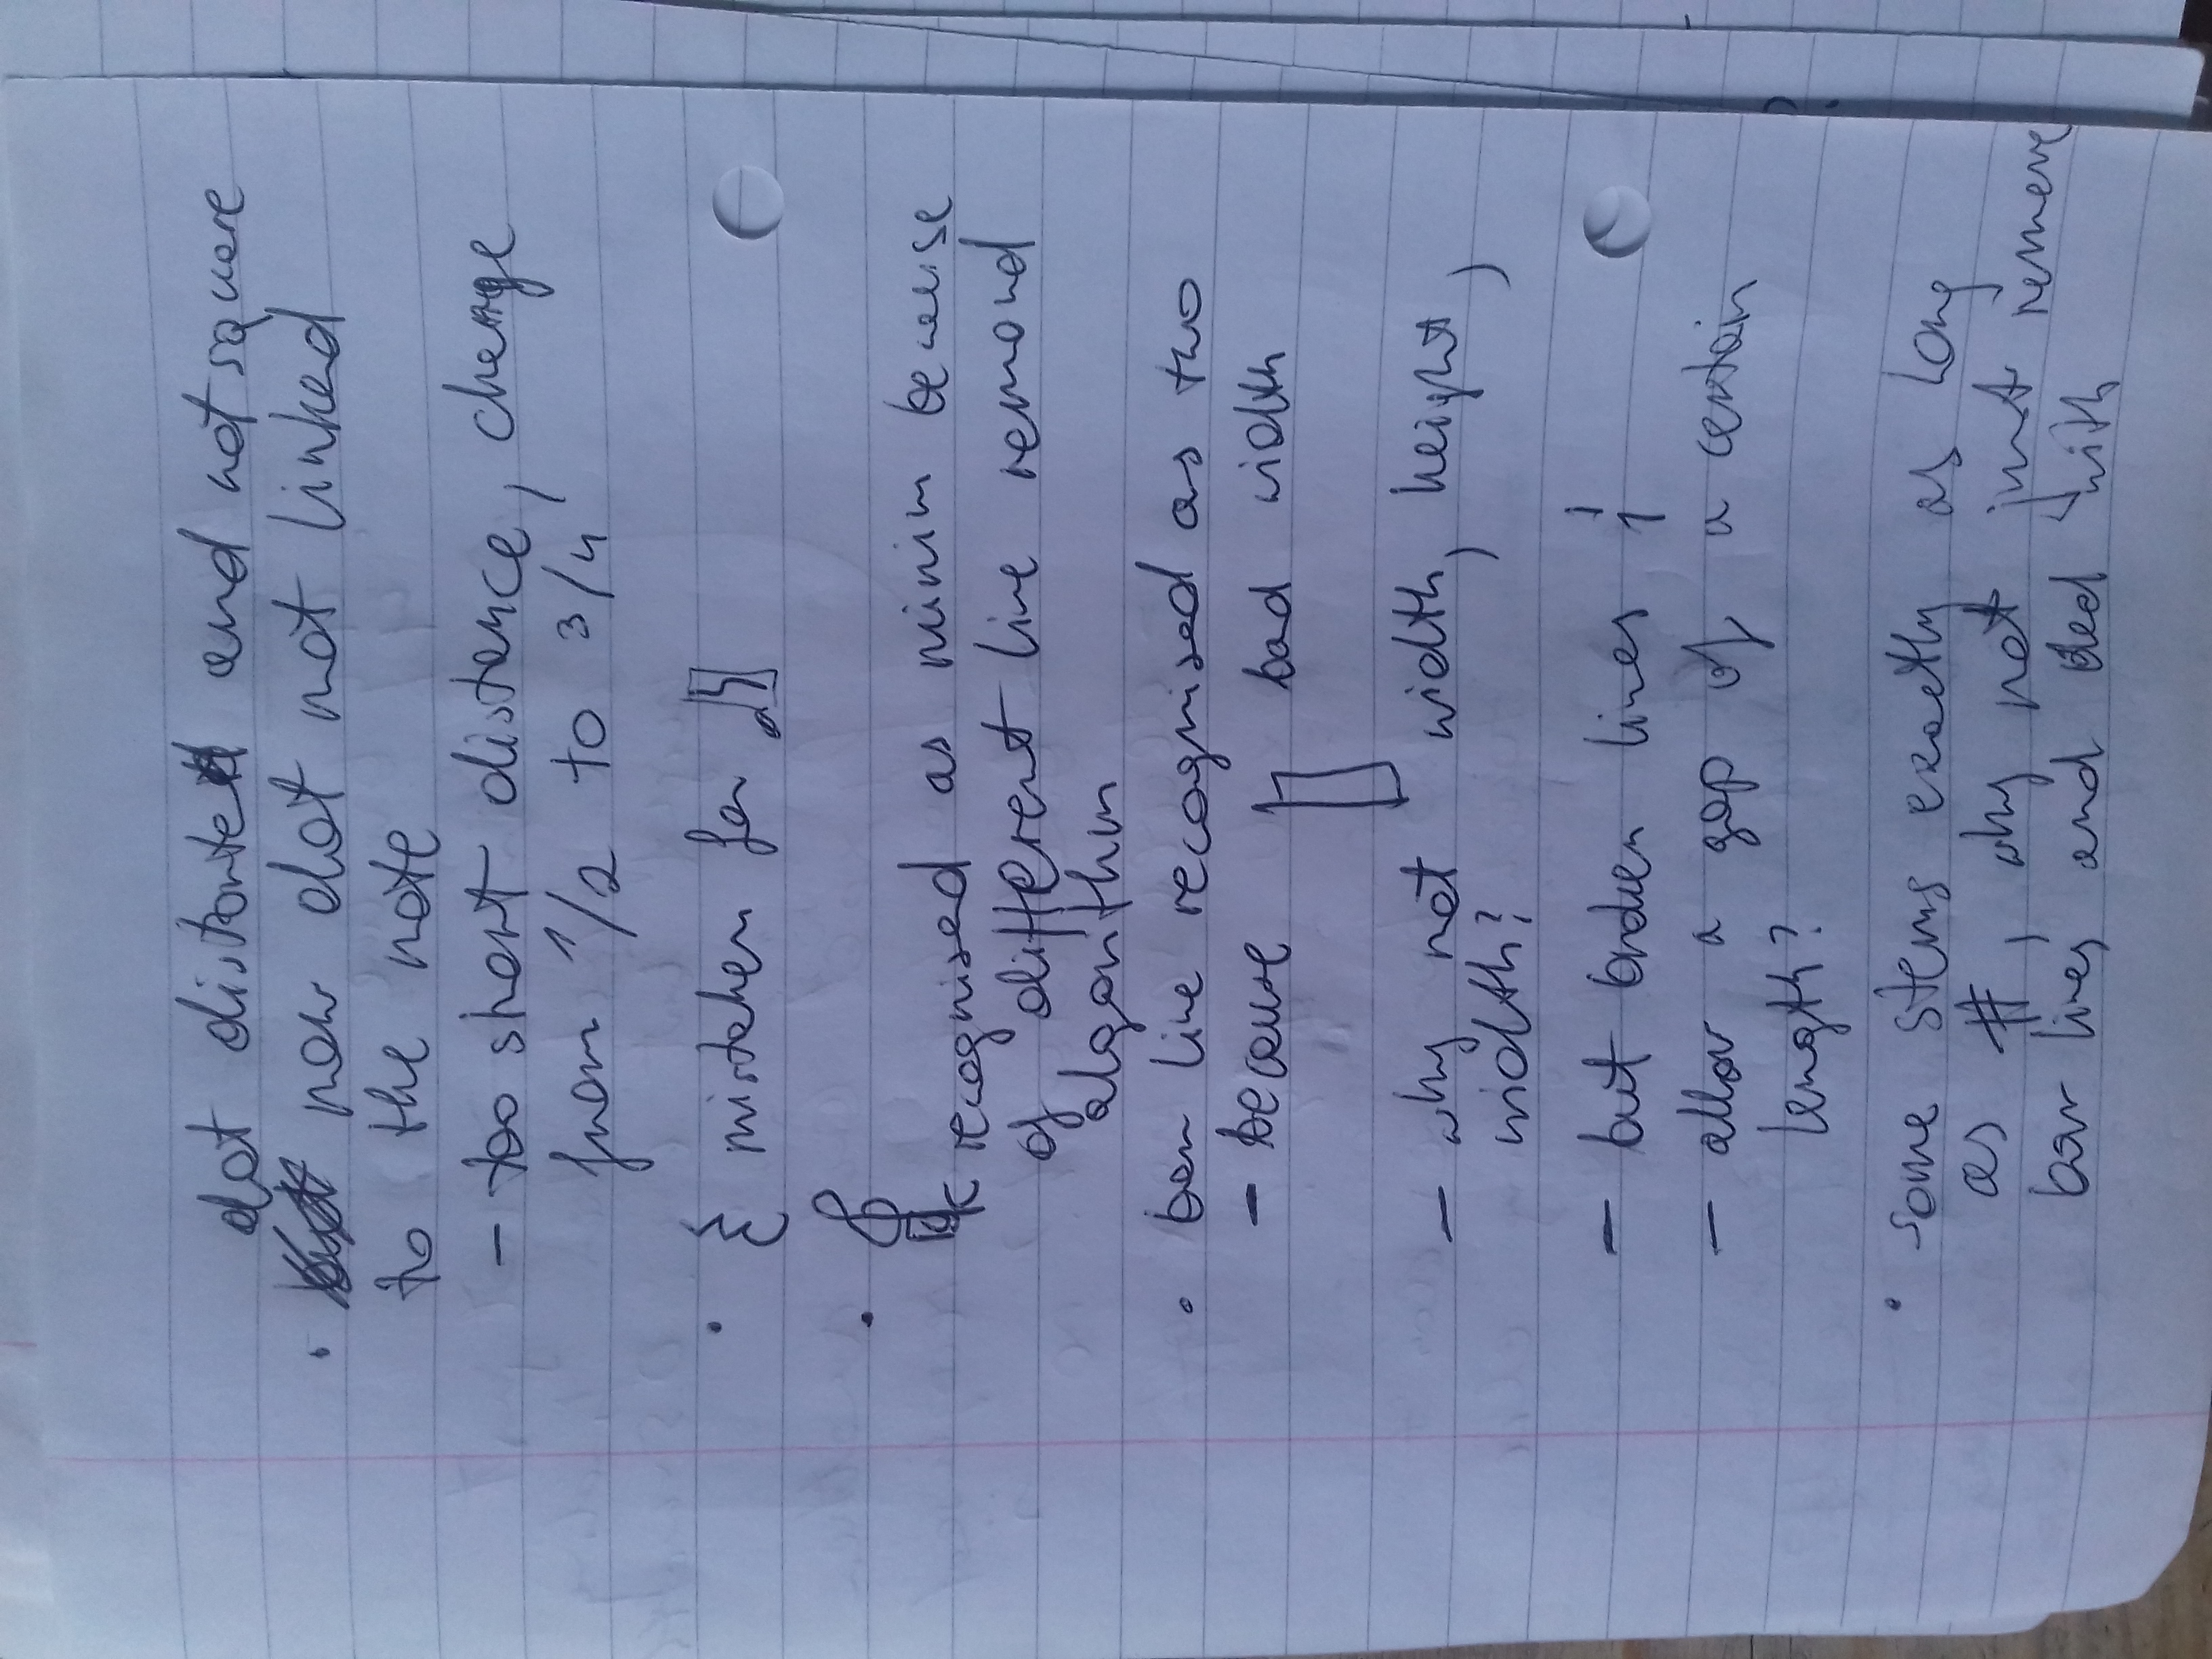 dot distorted and not square
• now dot not linked
to the note
- too short distance, change
from 1/2 to 3/4
• mistaken for
•
recognised as minim because
of different line removal
algorithm
• bar line recognised as two
- because bad width
- why not width, height,
width?
- but broken lines
- allow a gap of a certain
length?
• some stems exactly as long
as #, why not just remove
bar lines and deal with